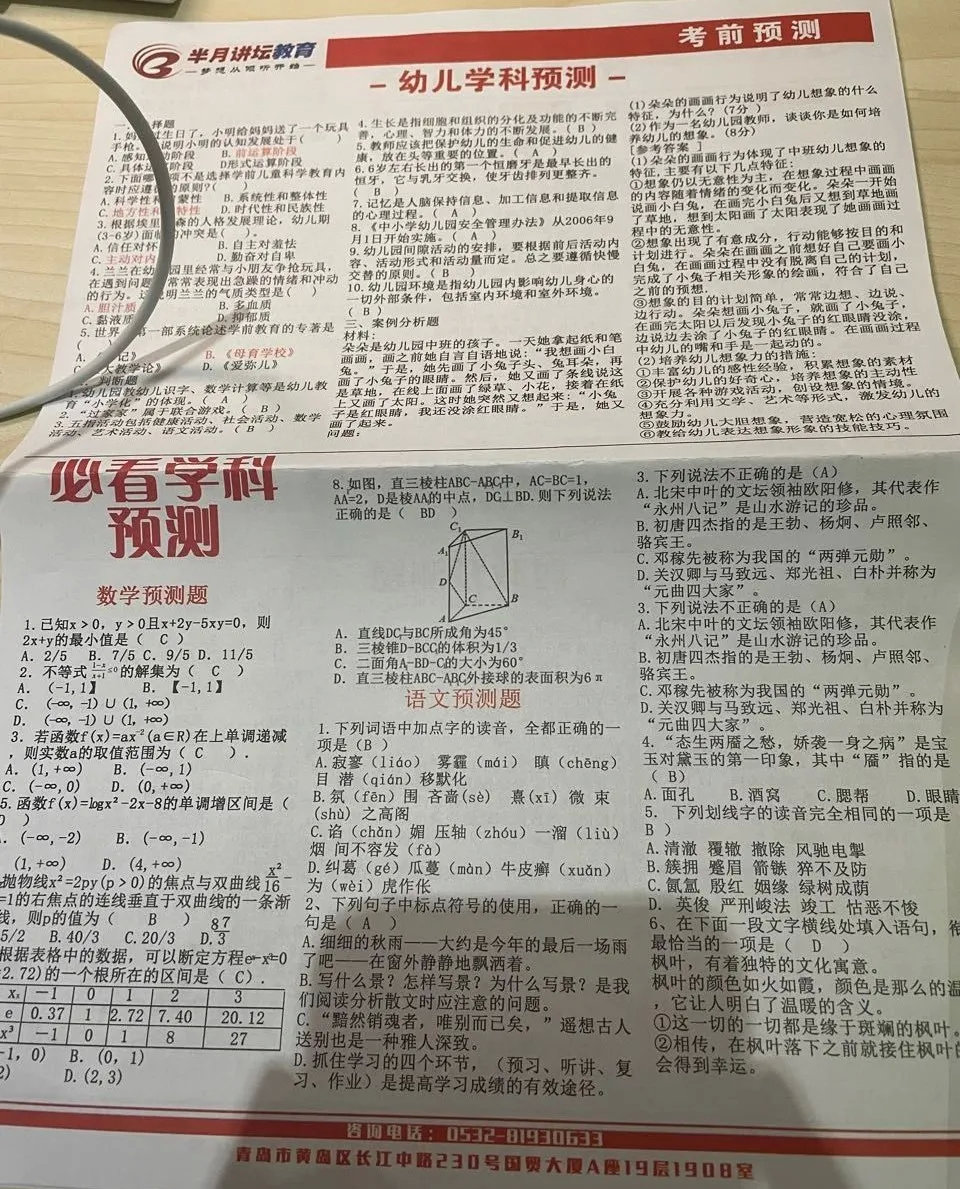 半月讲坛教育
—梦想从倾听开始—
考前预测
- 幼儿学科预测 -
择题
过生日了，小明给妈妈送了一个玩具
说明小明的认知发展处于(
阶段 B. 前运算阶段
阶段 D形式运算阶段
2. 下面哪 项不是选择学前儿童科学教育内
容时应遵 的原则?(
A. 科学性 蒙性 B. 系统性和整体性
C. 地方性和 特性 D. 时代性和民族性
3. 根据埃里 森的人格发展理论，幼儿期
(3-6岁)面临 冲突是( )。
A. 信任对怀 B. 自主对羞怯
C. 主动对内 D. 勤奋对自卑
4. 兰兰在幼 园里经常与小朋友争抢玩具，
在遇到问题 常常表现出急躁的情绪和冲动
的行为。这 明兰兰的气质类型是( )
A. 胆汁质 B. 多血质
C. 黏液质 D. 抑郁质
5. 世界 第一部系统论述学前教育的专著是
( )
记》 B. 《母育学校》
大教学论》 D. 《爱弥儿》
判断题
幼儿园教幼儿识字、数学计算等是幼儿教
育“小学化”的体现。( A )
2. “过家家”属于联合游戏。( B )
3. 五指活动包括健康活动、社会活动、数学
活动、艺术活动、语文活动。( B )
4. 生长是指细胞和组织的分化及功能的不断完
善，心理、智力和体力的不断发展。( B )
5. 教师应该把保护幼儿的生命和促进幼儿的健
康，放在头等重要的位置。( A )
6. 6岁左右长出的第一个恒磨牙是最早长出的
恒牙，它与乳牙交换，使牙齿排列更整齐。
( B )
7. 记忆是人脑保持信息、加工信息和提取信息
的心理过程。( A )
8. 《中小学幼儿园安全管理办法》从2006年9
月1日开始实施。( A )
9. 幼儿园间隙活动的安排，要根据前后活动内
容、活动形式和活动量而定。总之要遵循快慢
交替的原则。( B )
10. 幼儿园环境是指幼儿园内影响幼儿身心的
一切外部条件，包括室内环境和室外环境。
( B )
三、案例分析题
材料：
朵朵是幼儿园中班的孩子。一天她拿起纸和笔
画画，画之前她自言自语地说：“我想画小白
兔。”于是，她先画了小兔子头、兔耳朵，再
画了小兔子的眼睛。然后，她又画了条线说这
是草地，在线上面画了绿草、小花，接着在纸
上又画了太阳。这时她突然又想起来：“小兔
子是红眼睛，我还没涂红眼睛。”于是，她又
画了起来。
问题：
(1) 朵朵的画画行为说明了幼儿想象的什么
特征，为什么？(7分 )
(2) 作为一名幼儿园教师，谈谈你是如何培
养幼儿的想象。(8分)
[参考答案 ]
(1) 朵朵的画画行为体现了中班幼儿想象的
特征，主要有以下几点特征：
①想象仍以无意性为主，在想象过程中画画
的内容随着情绪的变化而变化。朵朵一开始
说画小白兔，在画完小白兔后又想到草地画
了草地，想到太阳画了太阳表现了她画画过
程中的无意性。
②想象出现了有意成分，行动能够按目的和
计划进行。朵朵在画画之前想好自己要画小
白兔，在画画过程中没有脱离自己的计划，
完成了小兔子相关形象的绘画，符合了自己
之前的预想.
③想象的目的计划简单，常常边想、边说、
边行动。朵朵想画小兔子，就画了小兔子，
在画完太阳以后发现小兔子的红眼睛没涂，
边说边去涂了小兔子的红眼睛。在画画过程
中幼儿的嘴和手是一起动的。
(2) 培养幼儿想象力的措施：
①丰富幼儿的感性经验，积累想象的素材
②保护幼儿的好奇心，培养想象的主动性
③开展各种游戏活动，创设想象的情境。
④充分利用文学、艺术等形式，激发幼儿的
想象力。
⑤鼓励幼儿大胆想象，营造宽松的心理氛围
⑥教给幼儿表达想象形象的技能技巧。
必看学科
预测
数学预测题
1. 已知x＞0，y＞0且x+2y-5xy=0，则
2x+y的最小值是（ C ）
A. 2/5 B. 7/5 C. 9/5 D. 11/5
2. 不等式 1-x/x+1≤0的解集为（ C ）
A. （-1, 1】 B. 【-1, 1】
C. (-∞, -1) ∪ (1, +∞)
D. (-∞, -1) ∪ (1, +∞)
3. 若函数f(x)=ax⁻²(a∈R)在上单调递减
，则实数a的取值范围为（ C ）.
A. (1, +∞) B. (-∞, 1)
C. (-∞, 0) D. (0, +∞)
5. 函数f(x)=logx²-2x-8的单调增区间是（
D ）
. (-∞, -2) B. (-∞, -1)
(1, +∞) D. (4, +∞)
抛物线x²=2py(p＞0)的焦点与双曲线 x²/16 -
=1的右焦点的连线垂直于双曲线的一条渐
线，则p的值为（ B ）
5/2 B. 40/3 C. 20/3 D. 87/3
根据表格中的数据，可以断定方程e-x=0
2.72)的一个根所在的区间是（ C ）.
x. -1 0 1 2 3
e 0.37 1 2.72 7.40 20.12
x³ -1 0 1 8 27
-1, 0) B. (0, 1)
2) D. (2, 3)
8. 如图，直三棱柱ABC-ABC中，AC=BC=1，
AA=2，D是棱AA的中点，DC⊥BD. 则下列说法
正确的是（ BD ）
C₁ B₁
A₁
D
C B
A
A. 直线DC与BC所成角为45°
B. 三棱锥D-BCC的体积为1/3
C. 二面角A-BD-C的大小为60°
D. 直三棱柱ABC-ABC外接球的表面积为6π
语文预测题
1. 下列词语中加点字的读音，全都正确的一
项是（B ）
A. 寂寥（liáo） 雾霾（mái） 瞋（chēng）
目 潜（qián）移默化
B. 氛（fēn）围 吝啬(sè) 熹(xī) 微 束
(shù) 之高阁
C. 谄（chǎn）媚 压轴（zhóu）一溜（liù）
烟 间不容发（fà）
D. 纠葛（gé）瓜蔓（màn）牛皮癣（xuǎn）
为（wèi）虎作伥
2、下列句子中标点符号的使用，正确的一
句是（ A ）
A. 细细的秋雨——大约是今年的最后一场雨
了吧——在窗外静静地飘洒着。
B. 写什么景？怎样写景？为什么写景？是我
们阅读分析散文时应注意的问题。
C. “黯然销魂者，唯别而已矣，”遥想古人
送别也是一种雅人深致。
D. 抓住学习的四个环节，（预习、听讲、复
习、作业）是提高学习成绩的有效途径。
3. 下列说法不正确的是（A）
A. 北宋中叶的文坛领袖欧阳修，其代表作
“永州八记”是山水游记的珍品。
B. 初唐四杰指的是王勃、杨炯、卢照邻、
骆宾王。
C. 邓稼先被称为我国的“两弹元勋”。
D. 关汉卿与马致远、郑光祖、白朴并称为
“元曲四大家”。
3. 下列说法不正确的是（A）
A. 北宋中叶的文坛领袖欧阳修，其代表作
“永州八记”是山水游记的珍品。
B. 初唐四杰指的是王勃、杨炯、卢照邻、
骆宾王。
C. 邓稼先被称为我国的“两弹元勋”。
D. 关汉卿与马致远、郑光祖、白朴并称为
“元曲四大家”。
4. “态生两靥之愁，娇袭一身之病”是宝
玉对黛玉的第一印象，其中“靥”指的是
（ B）
A. 面孔 B. 酒窝 C. 腮帮 D. 眼睛
5. 下列划线字的读音完全相同的一项是
B ）
A. 清澈 覆辙 撤除 风驰电掣
B. 簇拥 蹙眉 箭镞 猝不及防
C. 氤氲 殷红 姻缘 绿树成荫
D. 英俊 严刑峻法 竣工 怙恶不悛
6、在下面一段文字横线处填入语句，衔
最恰当的一项是（ D ）
枫叶，有着独特的文化寓意。
枫叶的颜色如火如霞，颜色是那么的温
，它让人明白了温暖的含义。
①这一切的一切都是缘于斑斓的枫叶。
②相传，在枫叶落下之前就接住枫叶的
会得到幸运。
咨询电话：0532-81930633
青岛市黄岛区长江中路230号国贸大厦A座19层1908室